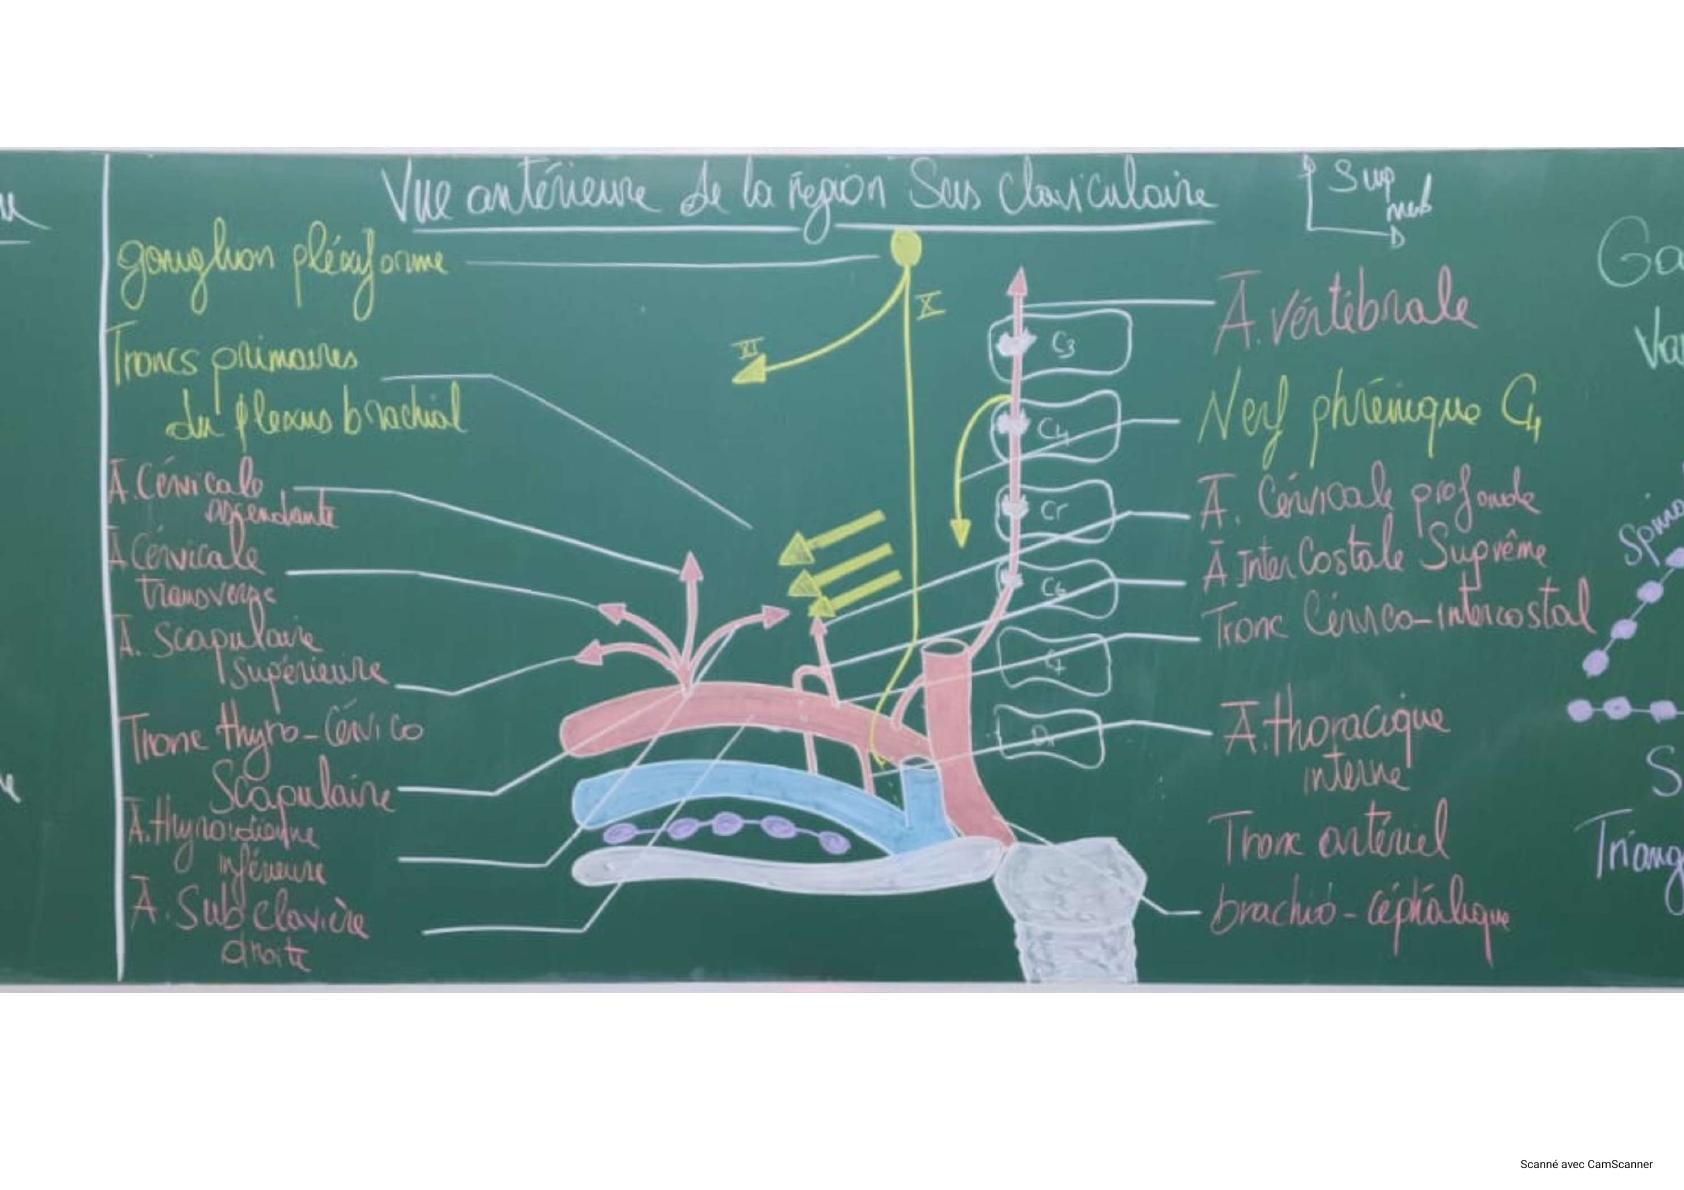 Vue antérieure de la région Sus Claviculaire
Sup
med
gonglion pléxiforme
Troncs primaires
du plexus brachial
A. Cérvicale
ascendante
A Cérvicale
transverse
A. Scapulaire
supérieure
Tronc thyro-Cérvico
Scapulaire
A. thyroidienne
inférieure
A. Subclavière
droite
XI
X
C3
C4
C5
C6
C7
D1
A. vértébrale
Nerf phrénique C4
A. Cérvicale profonde
A InterCostale Suprême
Tronc Cérvico-intercostal
A. thoracique
interne
Tronc artériel
brachio-céphalique
Ga
Va
Spina
S
Triang
Scanné avec CamScanner